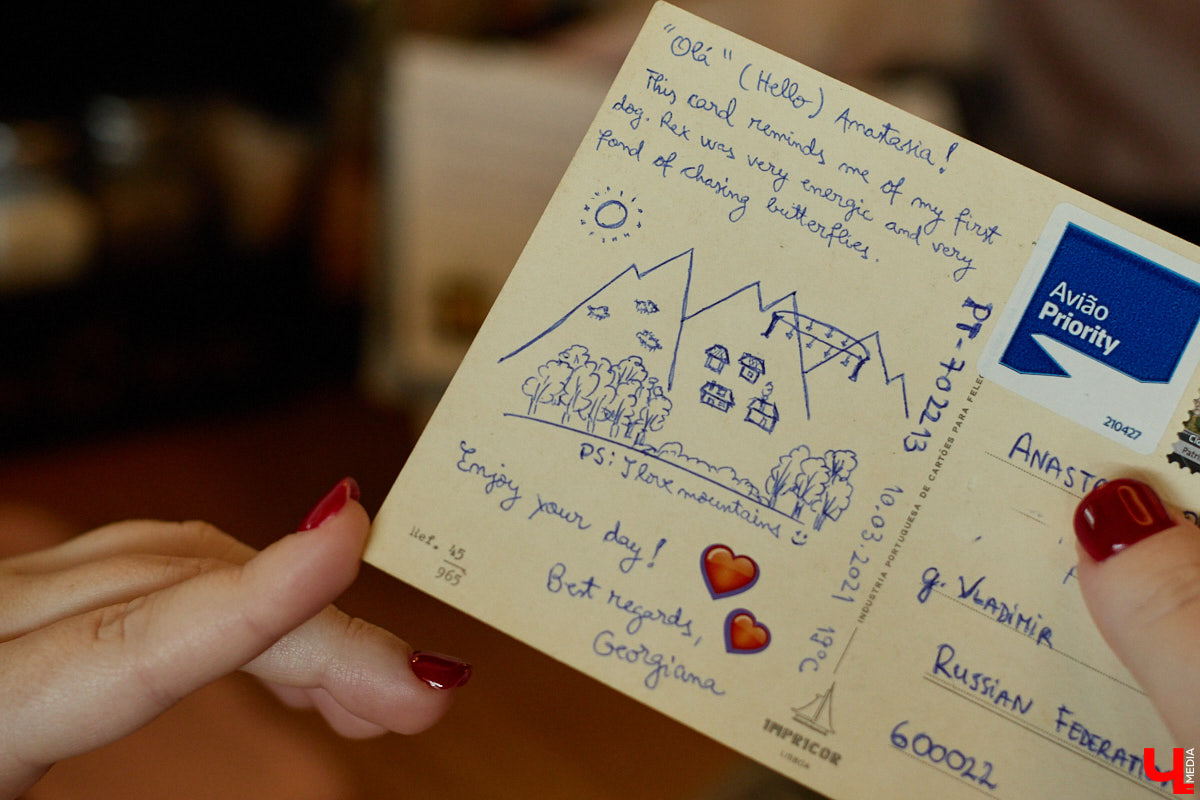 "Olá" (Hello) Anastasia!
This card reminds me of my first
dog. Rex was very energic and very
fond of chasing butterflies.
PS: I love mountains
Enjoy your day!
Best regards,
Georgiana
Ref. 45
965
PT-702213
10.03.2021 19°C
INDUSTRIA PORTUGUESA DE CARTÕES PARA
IMPRICOR
LISBOA
Avião
Priority
210427
ANAST
g. VLADIMIR
RUSSIAN FEDERATI
600022
Ч MEDIA